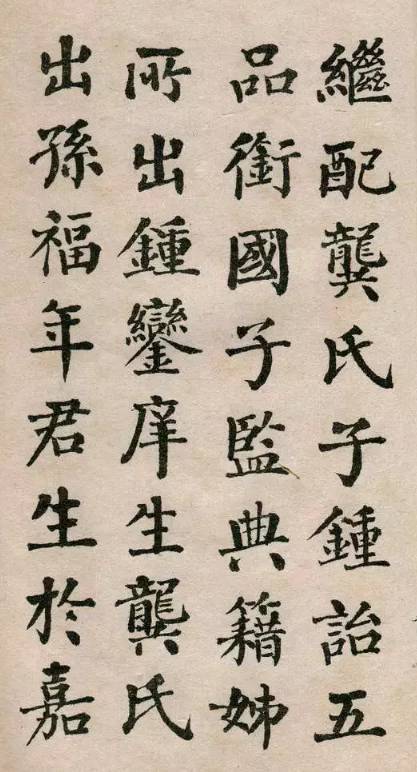 繼配龔氏子鍾詒五
品銜國子監典籍姊
所出鍾鑾庠生龔氏
出孫福年君生於嘉